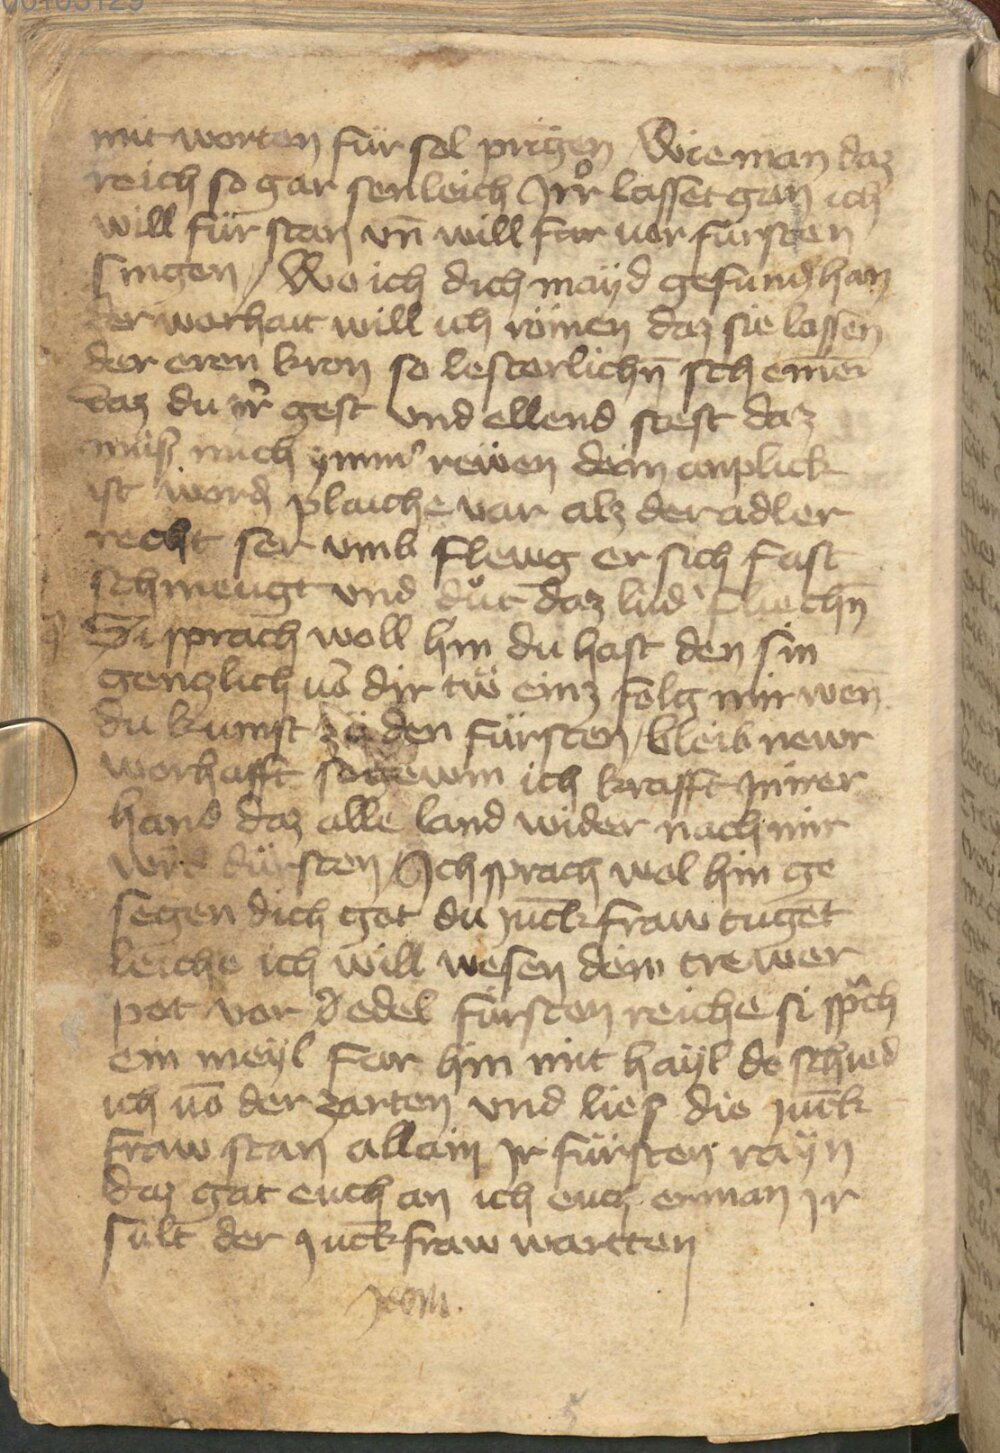 00105129
mit worten für sol pringen Wie man daz
reich so gar serleich Jrr lasset gan ich
will für stan vn̄ will far uor fürsten
singen / Wo ich dich mayd gefund han
der worhait will ich römen daz sie lassen
der eren kron so lesterlichn̄ schemen
daz du irr gest vnd ellend stest daz
muß mich ymmer rewen dein anplick
ist word plaiche var alz der adler
recht ser vmb flewg er sich fast
schmeugt vnd dut daz lud fliechn̄
Si sprach woll hin du hast den sin
genczlich uō dir tw einz folg mir wen̄
du kumst zu den fürsten / bleib newr
worhafft so gewin ich krafft Jn irer
hand daz alle land wider nach mir
wirt dürsten / Jch sprach wol hin ge
segen dich got du Juckfraw tuget
leiche ich will wesen dein trewer
pot vor d edel fürsten reiche si sprach
ein meyl far hin mit hayl do schied
ich uō der zarten vnd lies die Juck
fraw stan allain Jr fürsten rayn
daz gat euch an ich euch erman Jr
sült der Juckfraw wartten